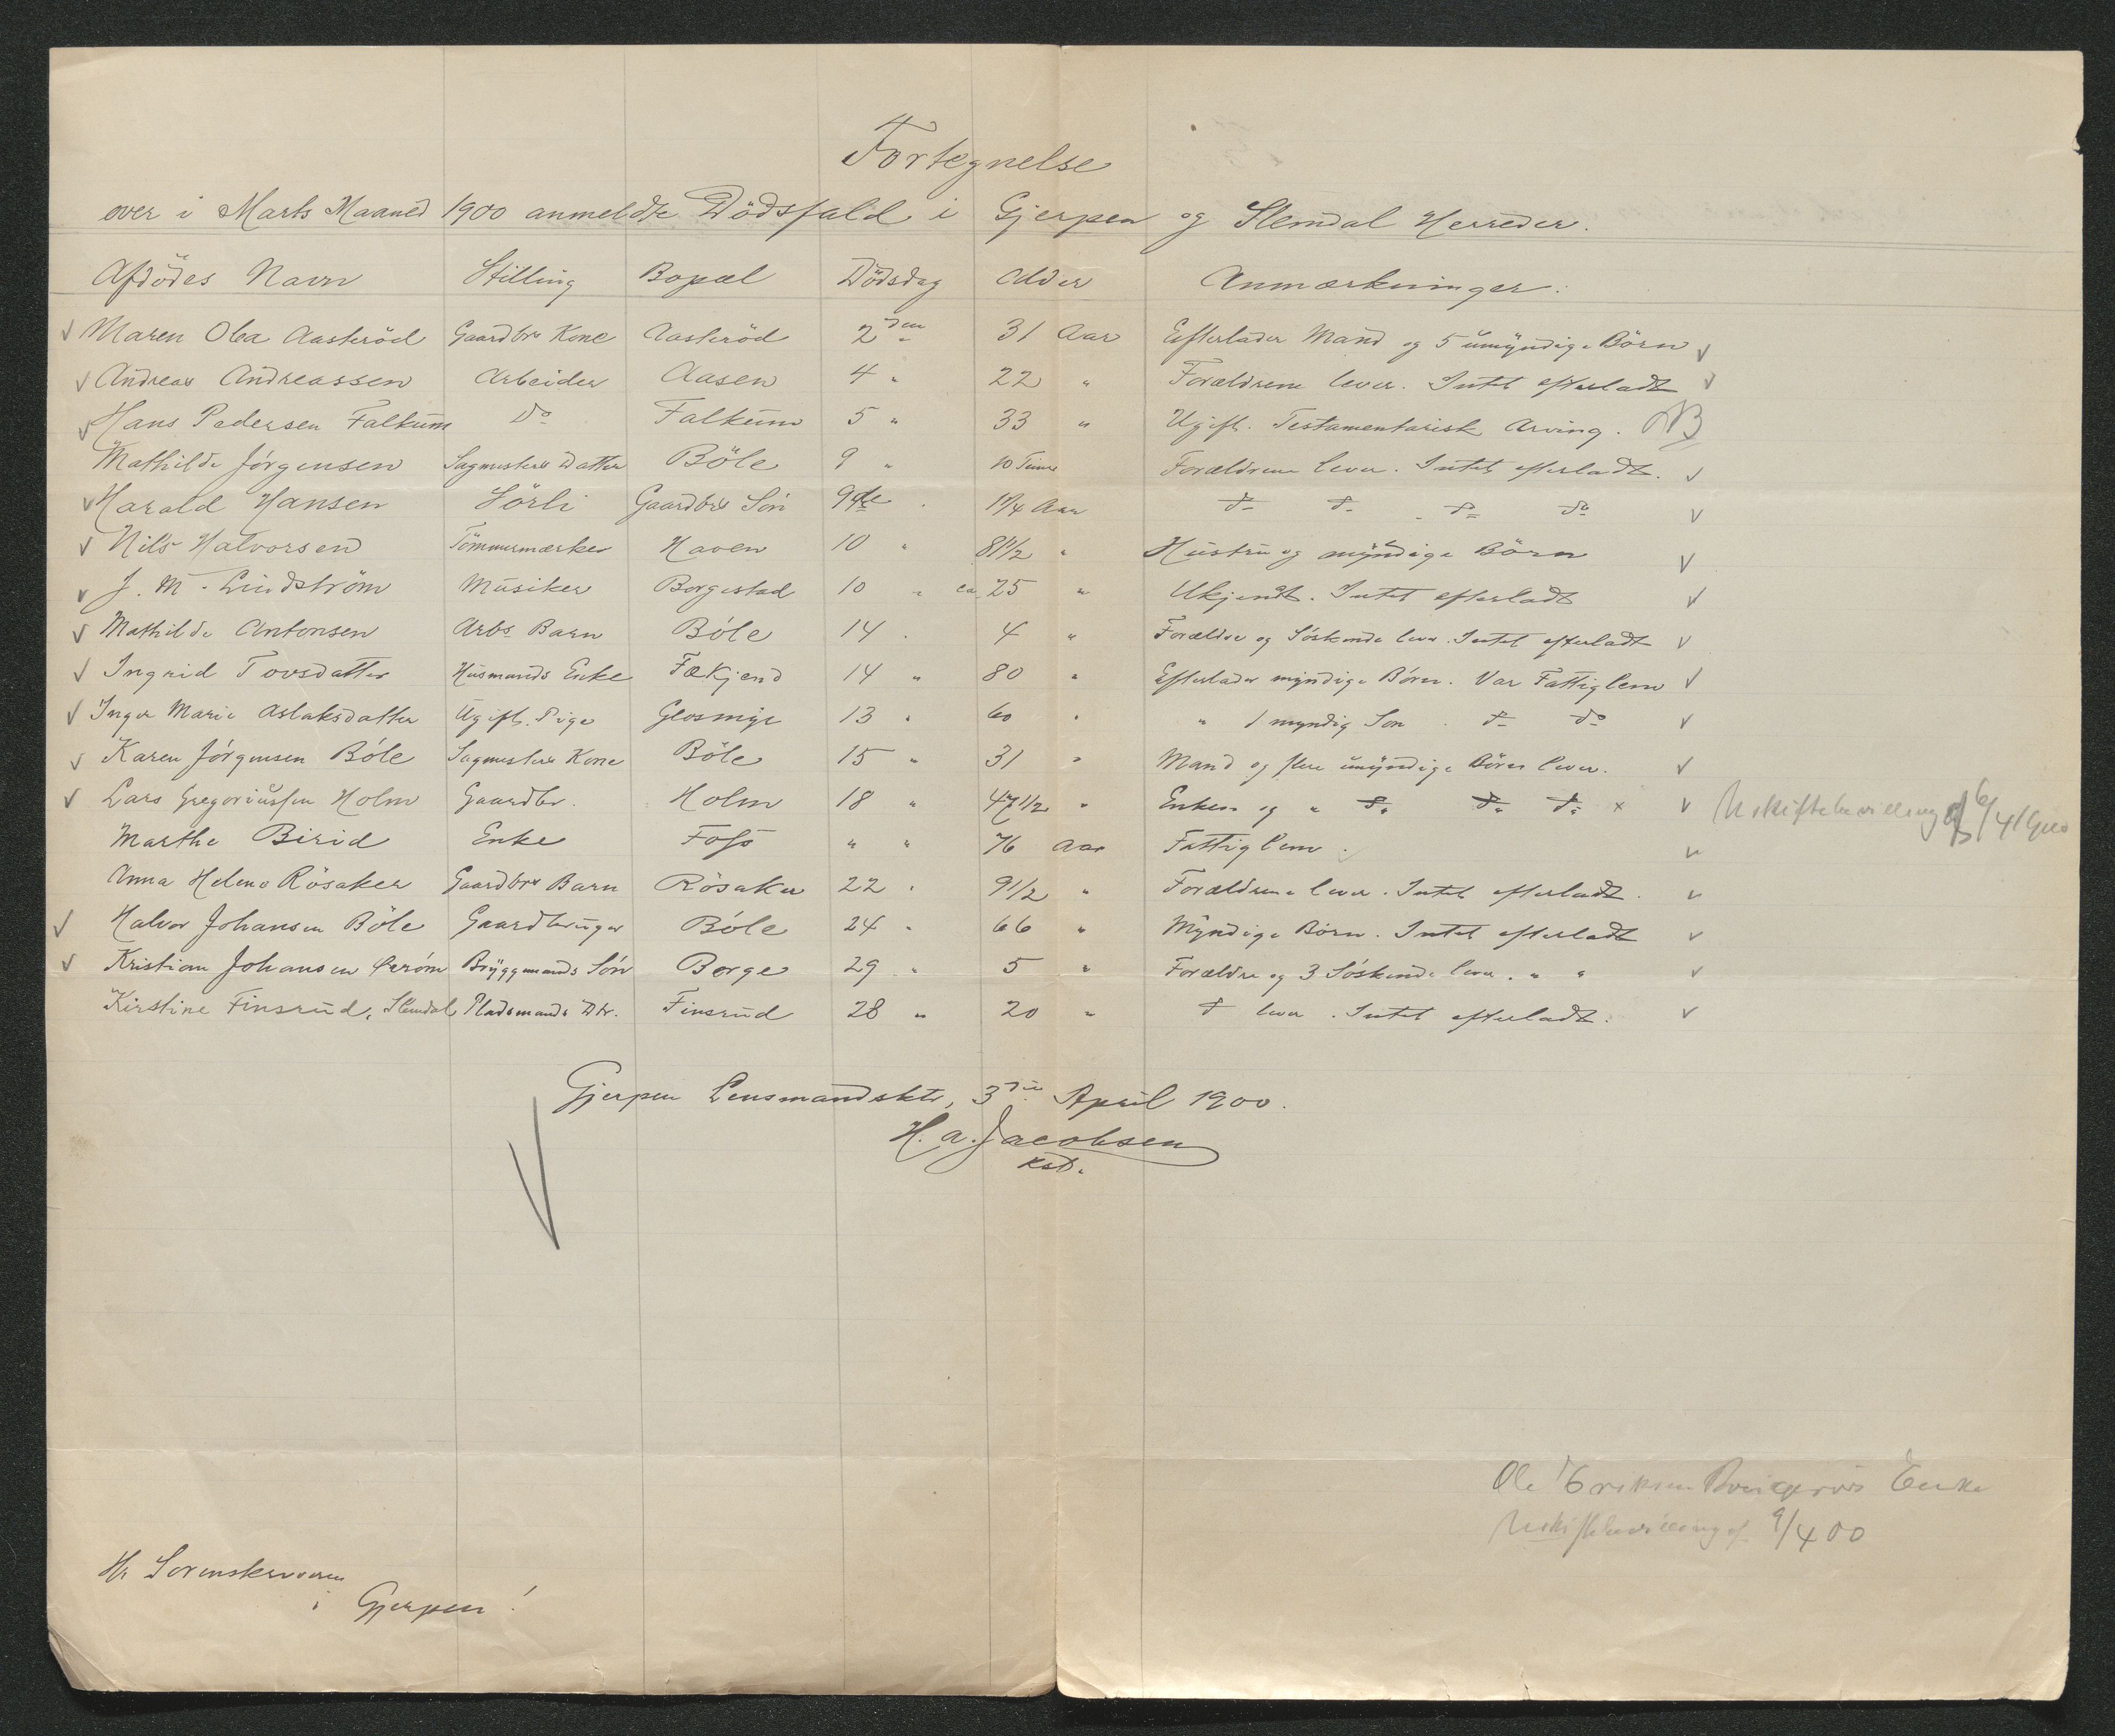 Fortegnelse
over i Marts Maaned 1900 anmeldte Dödsfald i Gjerpen og Slemdal Herreder.
Afdödes Navn Stilling Bopæl Dödsdag Alder Anmærkninger:
Maren Olea Aasteröd Gaardbrs Kone Aasteröd 2den 31 Aar Efterlader Mand og 5 umyndige Börn
Andreas Andreassen Arbeider Aasen 4 " 22 " Forældrene lever. Intet efterladt
Hans Pedersen Falkum Do Falkum 5 " 33 " Ugift. Testamentarisk Arving. NB
Mathilde Jörgensen Sagmesters Datter Böle 9 " 10 Timer Forældrene lever. Intet efterladt.
Harald Hansen Sörli Gaardbrs Sön 9de 1 1/4 Aar do do do do
Nils Halvorsen Tömmermærker Haven 10 " 81 1/2 " Hustru og myndige Börn
J. M. Lindström Musiker Borgestad 10 " ca 25 " Ukjendt. Intet efterladt
Mathilde Antonsen Arbs Barn Böle 14 " 4 " Forældre og Söskende lever. Intet efterladt
Ingrid Tovsdatter Husmands Enke Fækjend 14 " 80 " Efterlader myndige Börn. Var Fattiglem
Inger Marie Aslaksdatter Ugift. Pige 13 " 60 " " 1 myndig Sön. do do
Karen Jörgensen Böle Sagmesters Kone Böle 15 " 31 " Mand og flere umyndige Börn lever.
Lars Gregoriussen Holm Gaardbr. Holm 18 " 47 1/2 " Enken og " do do do x Uskiftebevilling af 6/4 1900
Marthe Birid Enke Foss " " 76 Aar Fattiglem.
Anna Helene Rösaker Gaardbrs Barn Rösaker 22 " 9 1/2 " Forældrene lever. Intet efterladt.
Halvor Johansen Böle Gaardbruger Böle 24 " 66 " Myndige Börn. Intet efterladt
Kristian Johansen Bryggemands Sön Borge 29 " 5 " Forældre og 3 Söskende lever. " "
Kirstine Finsrud, Slemdal Pladsmands Dtr. Finsrud 28 " 20 " do lever. Intet efterladt.
Gjerpen Lensmandsktr, 3die April 1900.
H. A. Jacobsen
kst.
Ole Eriksen Enke
Uskiftebevilling af 9/4 00
Hr Sorenskriveren
i Gjerpen!